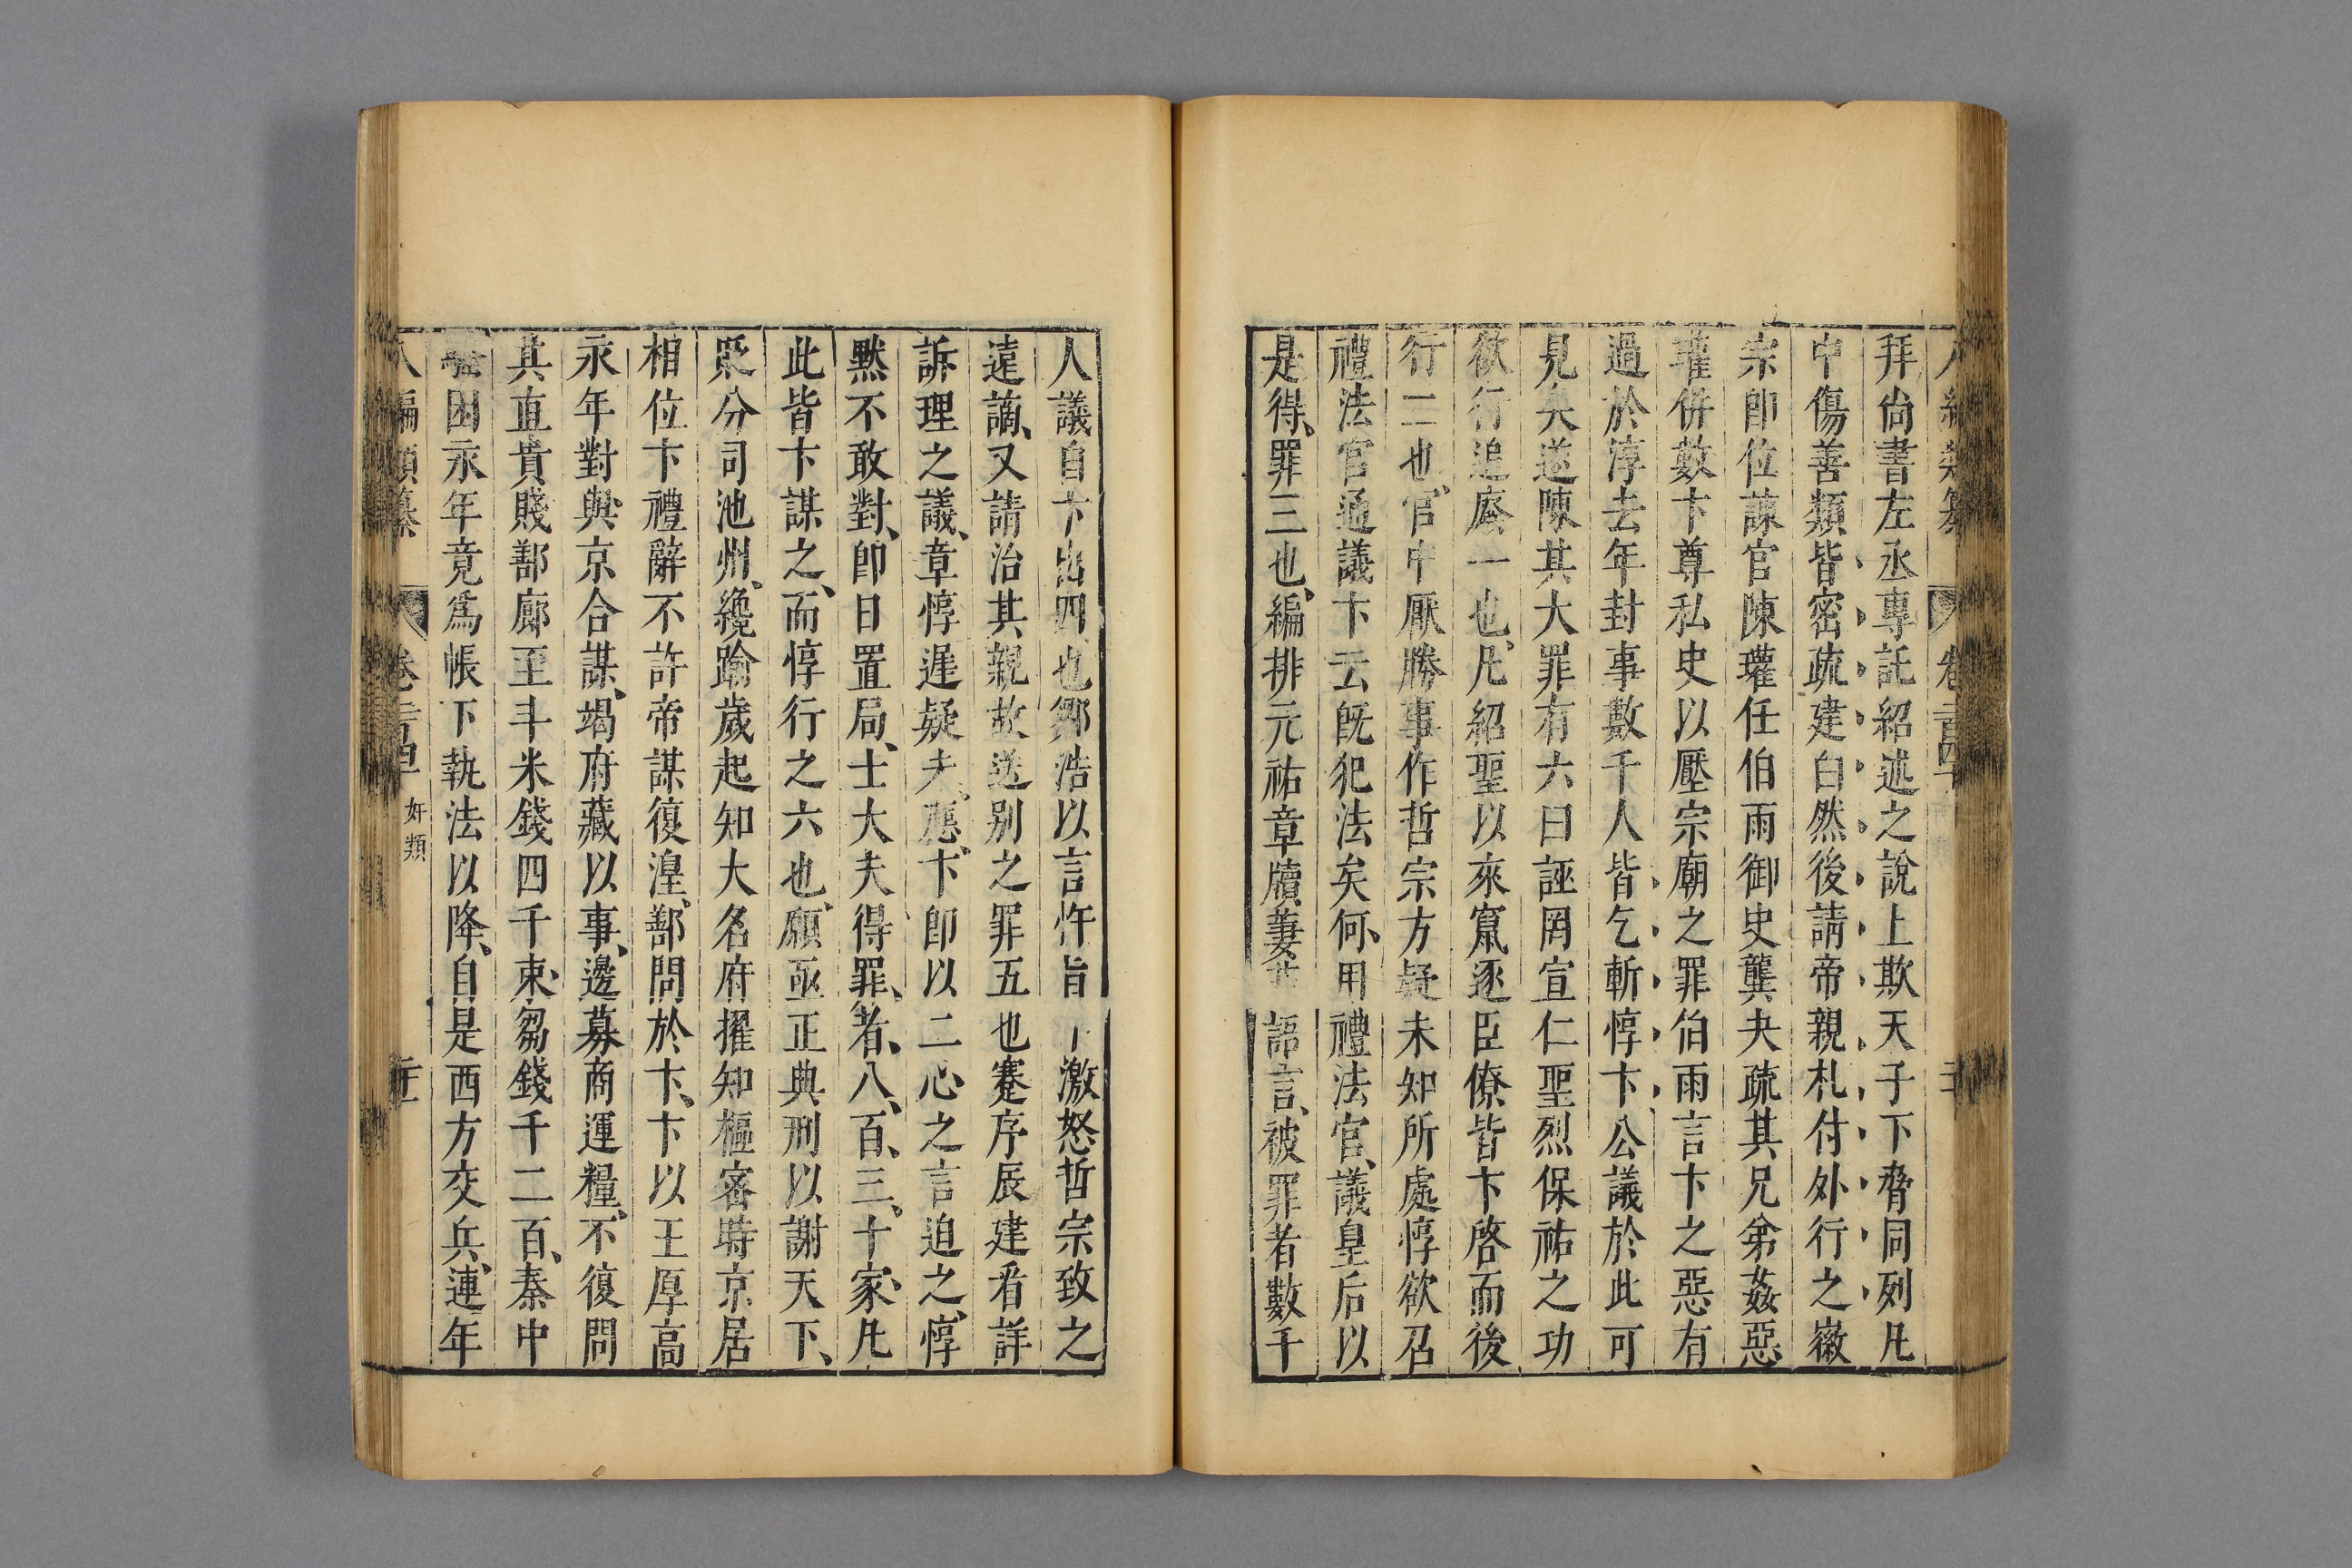 拜尙書左丞專託紹述之說上欺天子下脅同列凡
中傷善類皆密疏建白然後請帝親札付外行之徽
宗卽位諫官陳瓘任伯雨御史龔夬疏其兄弟姦惡
瓘併數卞尊私史以壓宗廟之罪伯雨言卞之惡有
過於淳去年封事數千人皆乞斬惇卞公議於此可
見矣遂陳其大罪有六曰誣罔宣仁聖烈保祐之功
欲行追廢一也凡紹聖以來竄逐臣僚皆卞啓而後
行二也官中厭勝事作哲宗方疑未知所處惇欲召
禮法官通議卞云旣犯法矣何用禮法官議皇后以
是得罪三也編排元祐章牘萋菲語言被罪者數千
人議自卞出四也鄒浩以言忤旨卞激怒哲宗致之
遠謫又請治其親故送别之罪五也蹇序辰建看詳
訴理之議章惇遲疑未應卞卽以二心之言迫之惇
黙不敢對卽日置局士大夫得罪者八百三十家凡
此皆卞謀之而惇行之六也願亟正典刑以謝天下
貶分司池州纔踰歲起知大名府擢知樞密時京居
相位卞禮辭不許帝謀復湟鄯問於卞卞以王厚高
永年對與京合謀竭府藏以事邊募商運糧不復問
其直貴賤鄯廊至斗米錢四千束芻錢千二百秦中
困永年竟爲帳下執法以降自是西方交兵連年
八編類纂 卷二百四十 奸類